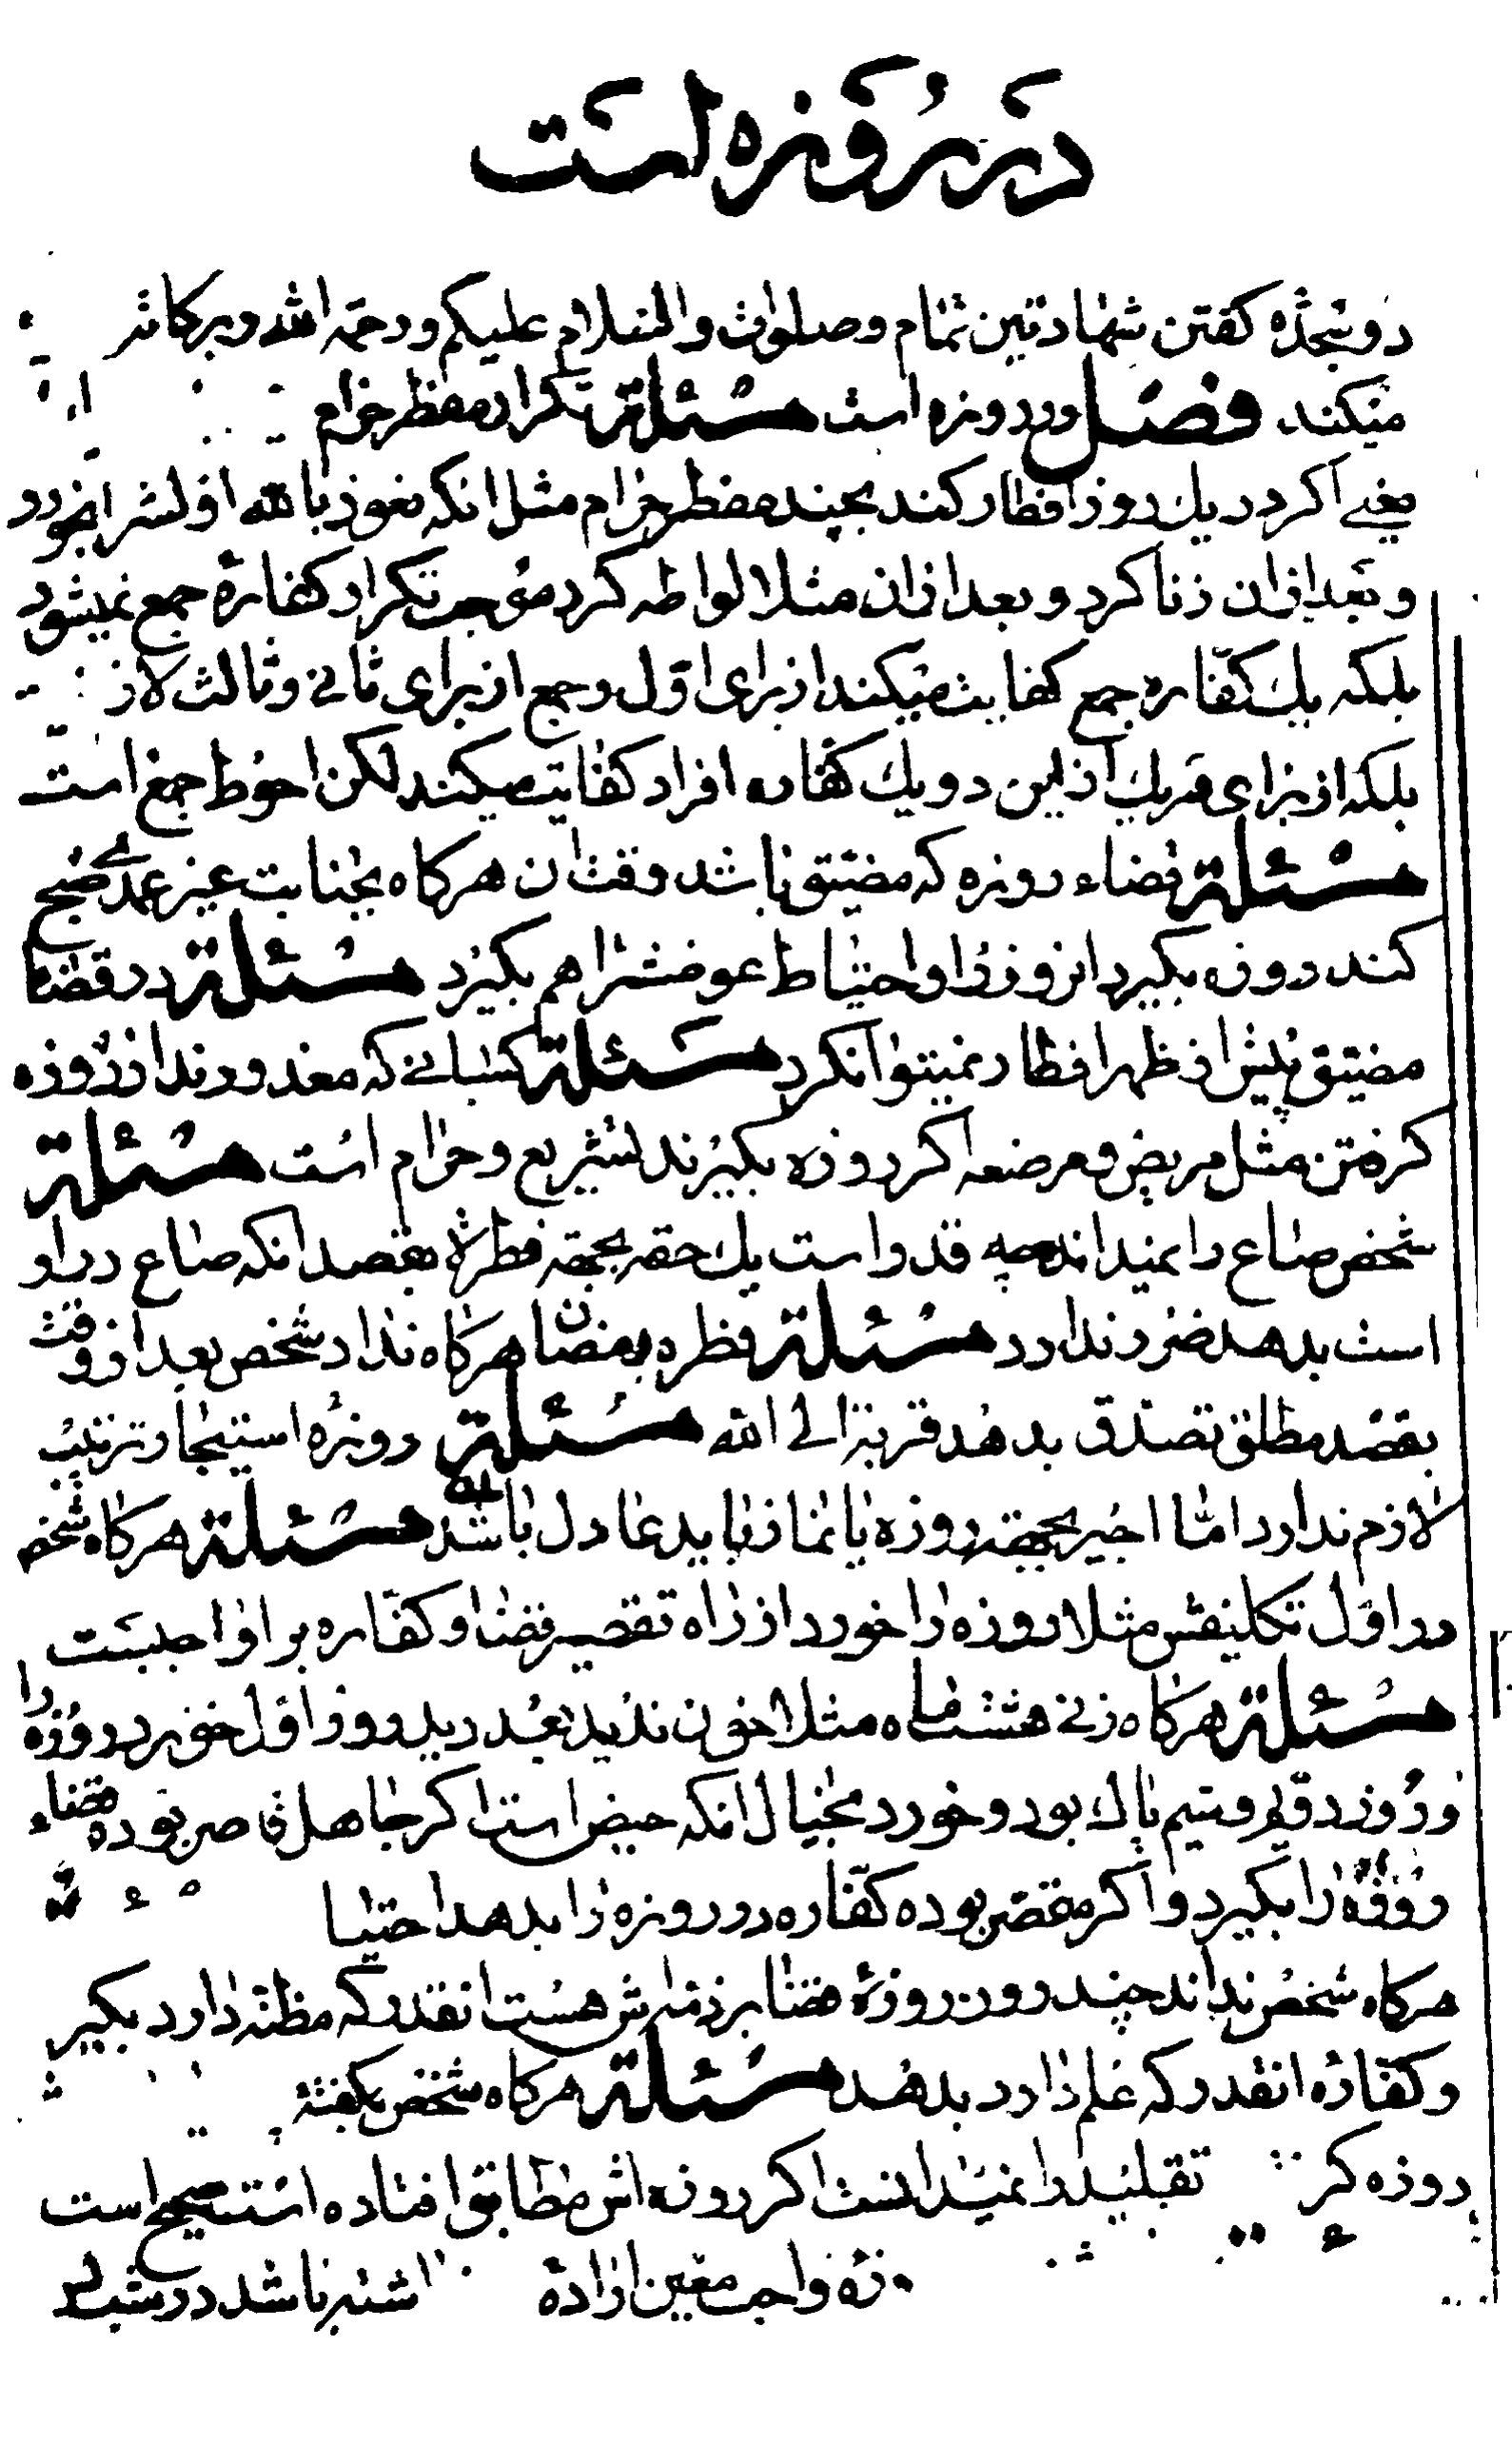 در روزه است
دو سجده کفتن شهادتین تمام و صلوات و السلام علیکم و رحمة الله و برکاته
میکند فصل در روزه است مسئلة تکرار مفطر حرام
یعنے اکر در یک روز افطار کند بچند مفطر حرام مثل انکه نعوذ بالله اول شراب خورد
و بعد از ان زنا کرد و بعد از ان مثلا لواطه کرد موجب تکرار کفارهٔ جمع نمیشود
بلکه یک کفّاره جمع کفایت میکند از برای اوّل و جمع از برای ثانے و ثالث لاز
بلکه از برای هریک از این دو یک کفاره افراد کفایت میکند لکن احوط جمع است
مسئلة قضاء روزه که مضیّق باشد وقت ان هرکاه بجنابت غیر عمدے صبح
کند روزه بکیرد انروز را و احتیاط عوضش را هم بکیرد مسئلة در قضاء
مضیّق پیش از ظهر افطار نمیتوانکرد مسئلة کسانے که معذورند از روزه
کرفتن مثل مریض و مرضعه اکر روزه بکیرند تشریع و حرام است مسئلة
شخص صاع را نمیداند چه قدر است یک حقه بجهة فطره بقصد انکه صاع در او
است بدهد ضرر ندارد مسئلة فطره رمضان هرکاه نداد شخص بعد از وقت
بقصد مطلق تصدّق بدهد قربة الی الله مسئلة روزهٔ استیجار ترتیب
لازم ندارد امّا اجیر بجهة روزه یا نماز باید عادل باشد مسئلة هرکاه شخص
در اوّل تکلیفش مثلا روزه را خورد از راه تقصیر قضا و کفّاره بر او واجبست
مسئلة هرکاه زنے هشت ماه مثلا خون ندید بعد دید روز اوّل خورد روزه را
و روز دوّم و سیم پاک بود و خورد بخیال انکه حیض است اکر جاهل قاصر بوده قضاء
روزه را بکیرد و اکر مقصّر بوده کفّاره دو روزه را بدهد احتیا
هرکاه شخص نداند چند روز روزهٔ قضا بر ذمه‌اش هست انقدر که مظنّه دارد بکیر
و کفّاره انقدر که علم دارد بدهد مسئلة هرکاه شخص یکفته
روزه کر تقلید را نمیدانست اکر روزه اش مطابق افتاده است صحیح است
زهٔ واجب معین ارادهٔ اشته باشد در شب